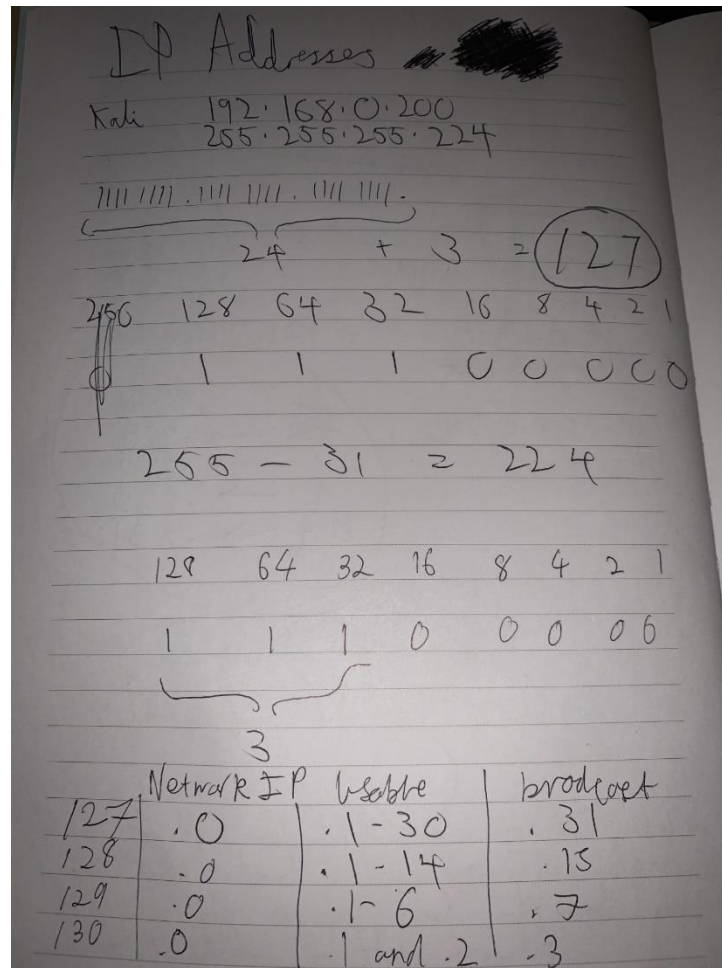 IP Addresses
Kali 192.168.0.200
255.255.255.224
1111 1111 . 1111 1111 . 1111 1111 .
24 + 3 = /27
256 128 64 32 16 8 4 2 1
0 1 1 1 0 0 0 0 0
255 - 31 = 224
128 64 32 16 8 4 2 1
1 1 1 0 0 0 0 0
3
Network IP Usable brodcast
/27 .0 .1-30 .31
/28 .0 .1-14 .15
/29 .0 .1-6 .7
/30 .0 .1 and .2 .3